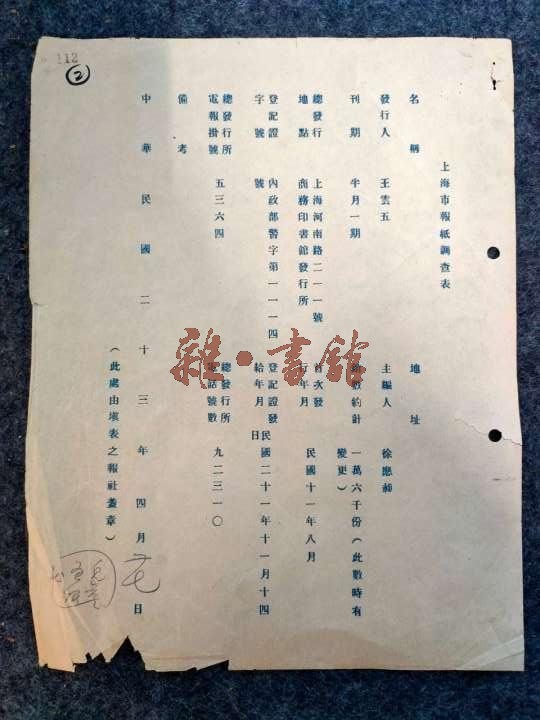 112
②
上海市報紙調查表
名稱　地址
發行人　王雲五　主編人　徐應昶
刊期　半月一期　約計　一萬六千份（此數時有變更）
總發行地點　上海河南路二一一號商務印書館發行所　首次發行年月　民國十一年八月
登記證字號　內政部警字第一一一四號　登記證發給年月日　民國二十一年十一月十四
總發行所電報掛號　五三六四　總發行所電話號數　九二三一〇
備考
中華民國二十三年四月　日
（此處由填表之報社蓋章）
雜·書館